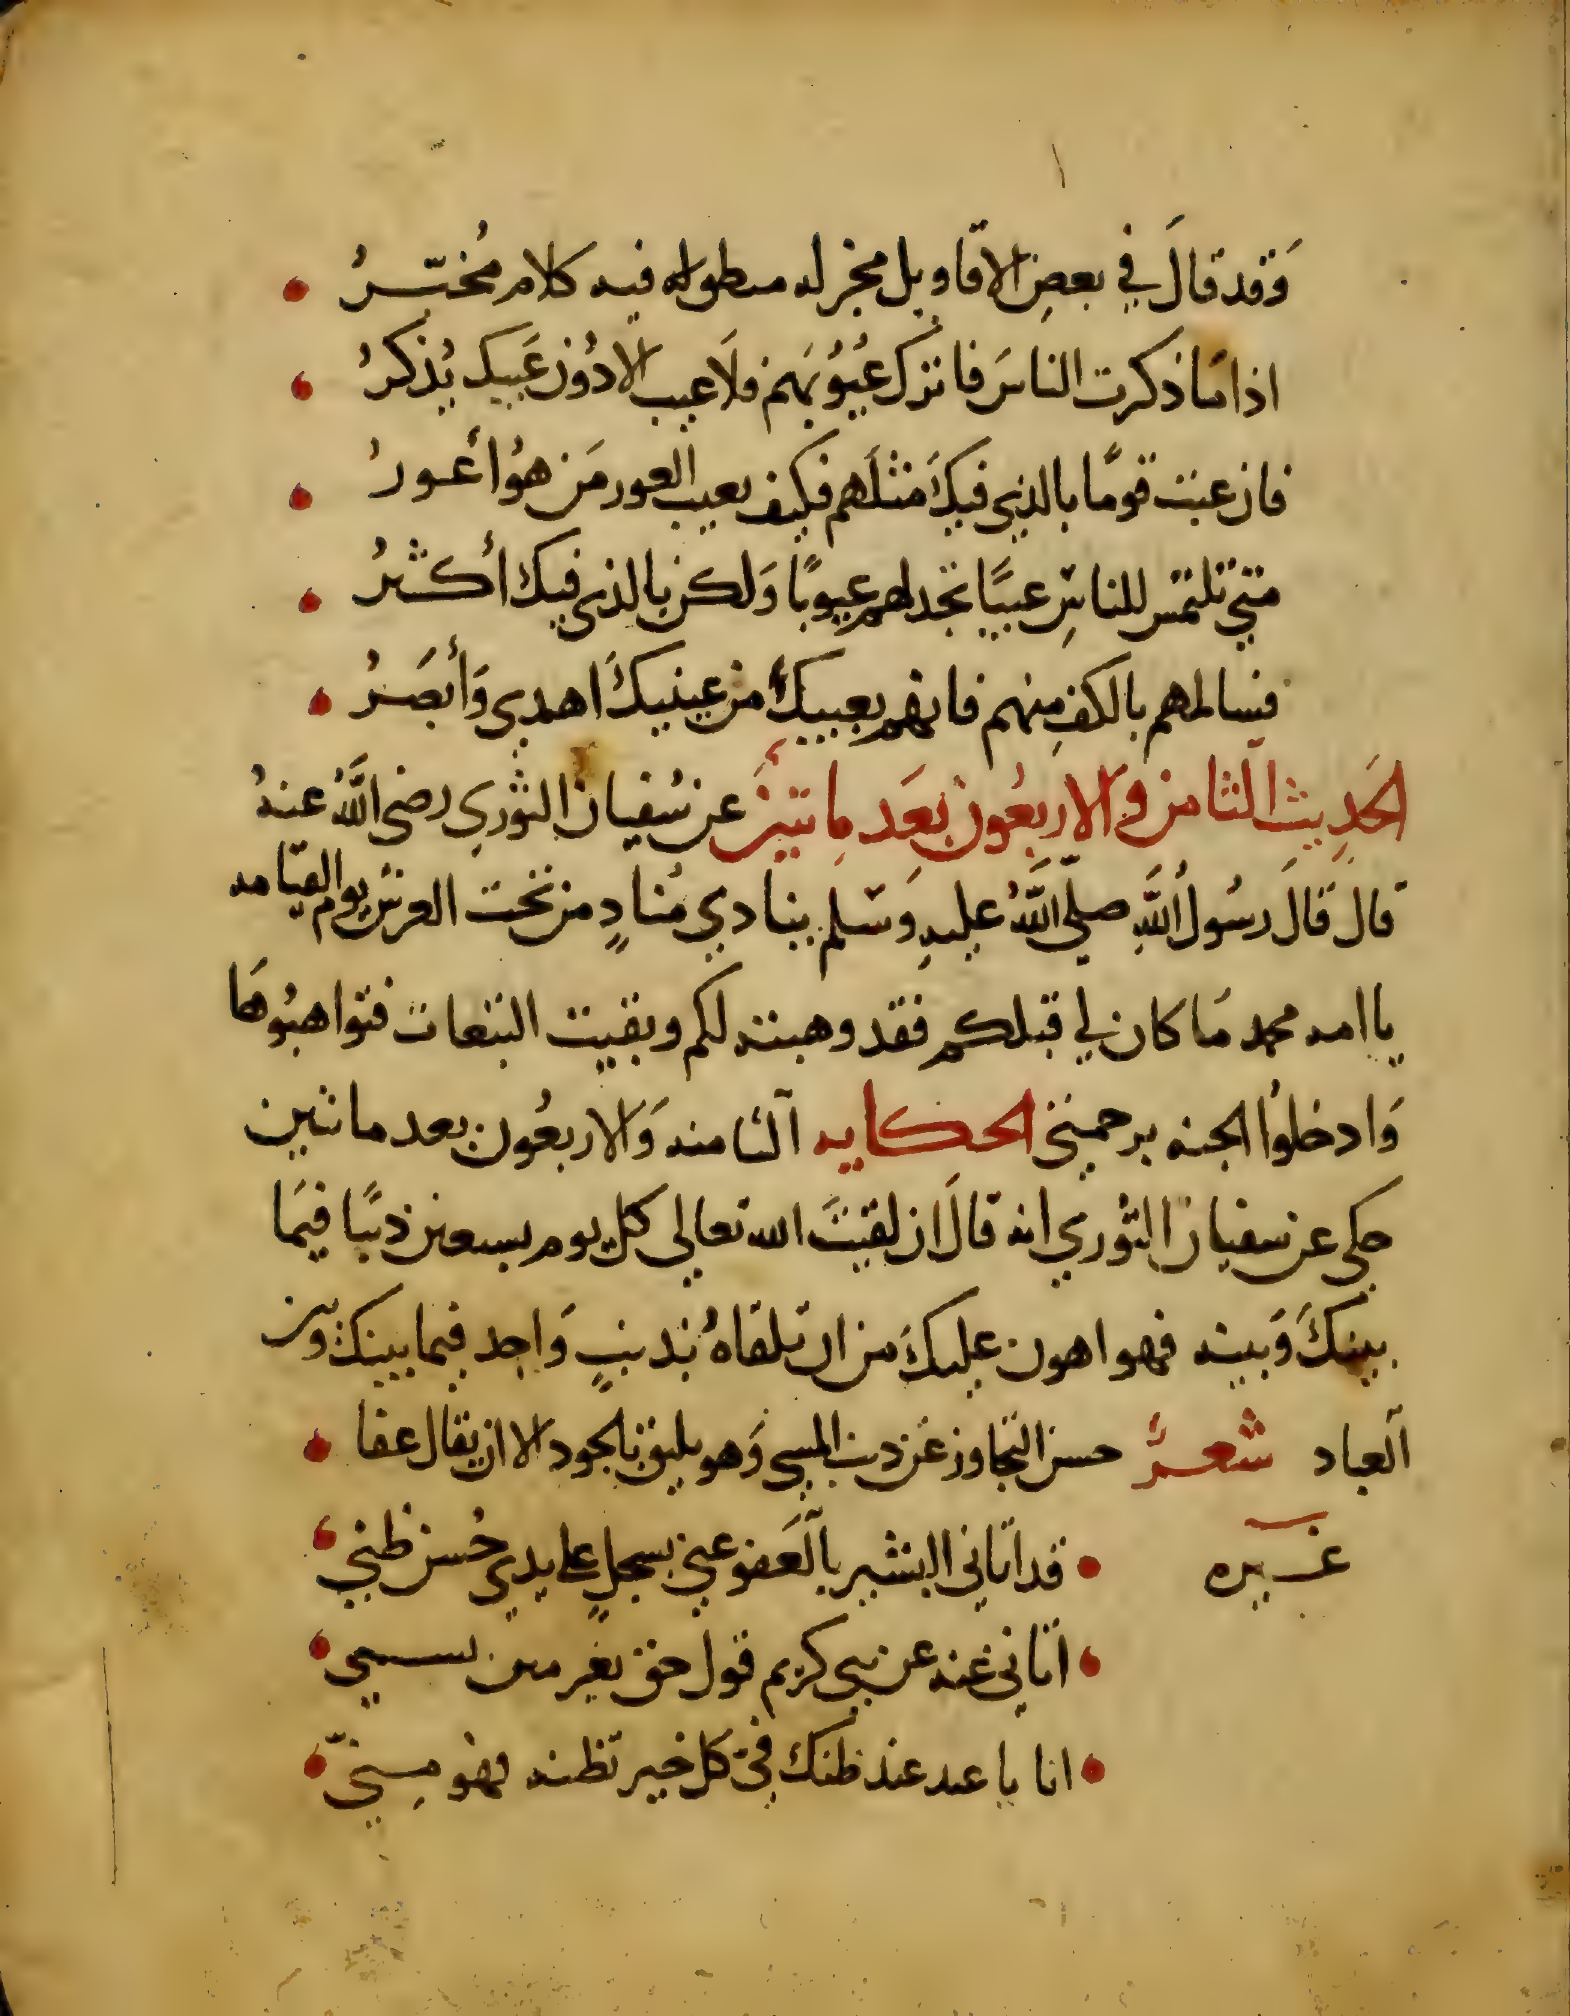 وَقد قالَ في بعضِ الاقاويل مخبر له منطق له فيه كلام مُخبّرُ
اذا ما ذكرت الناسَ فاترك عيُوُبَهم فلاَ عيب الا دُون عَيبك يُذكرُ
فان عبت قومًا بالذي فيكَ مثلَهم فكيف يعيب العور مَن هوُ أعورُ
متي تلتمس للناسِ عيبًا تجد لهم عيوبًا وَلكن بالذي فيك أكثرُ
فسالمهم بالكفِ منهم فانهم بعيبك من عينيكَ اهدي وَأبصَرُ
الحَدِيث الثامن وَالاربعُون بَعد مِائتين عن سُفيان الثوري رضى اللَّهُ عنهُ
قال قالَ رسُولُ اللَّهِ صلّى اللَّهُ عليهِ وَسّلم ينادي مُنادٍ من تحت العرش يوم القيامه
يا امه محمد مَا كان لي قبلكم فقد وهبته لكم وبقيت التبعات فتواهبُوهَا
وَادخلوُا الجنه برحمتي الحكايه الثامنه وَالاربعُون بعد مائتين
حكى عن سفيان الثوري انه قالَ ان لقيتَ الله تعالي كل يوم بسبعين ذنبًا فيمَا
بينكَ وَبينه فهو اهون عليكَ من ان تلقاهُ بذنبٍ وَاحِد فيما بينك وبين
العباد شعرٌ حسن التجاوز عَن ذنب المسي وَهو يليق بالجود الا ان يقال عفا
غيره قد اتاني البشير بالعَفو عني بسجلٍ علي يدي حُسن ظني
اتاني عنه عن نبي كريم قول حق بغير مين
انا يا عبد عند ظنك في كل خير تظنه فهو مِنيّ